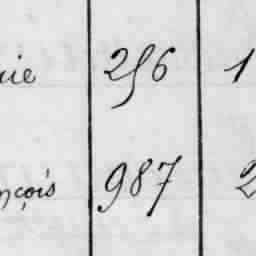 rie 256 1
nçois 987 2